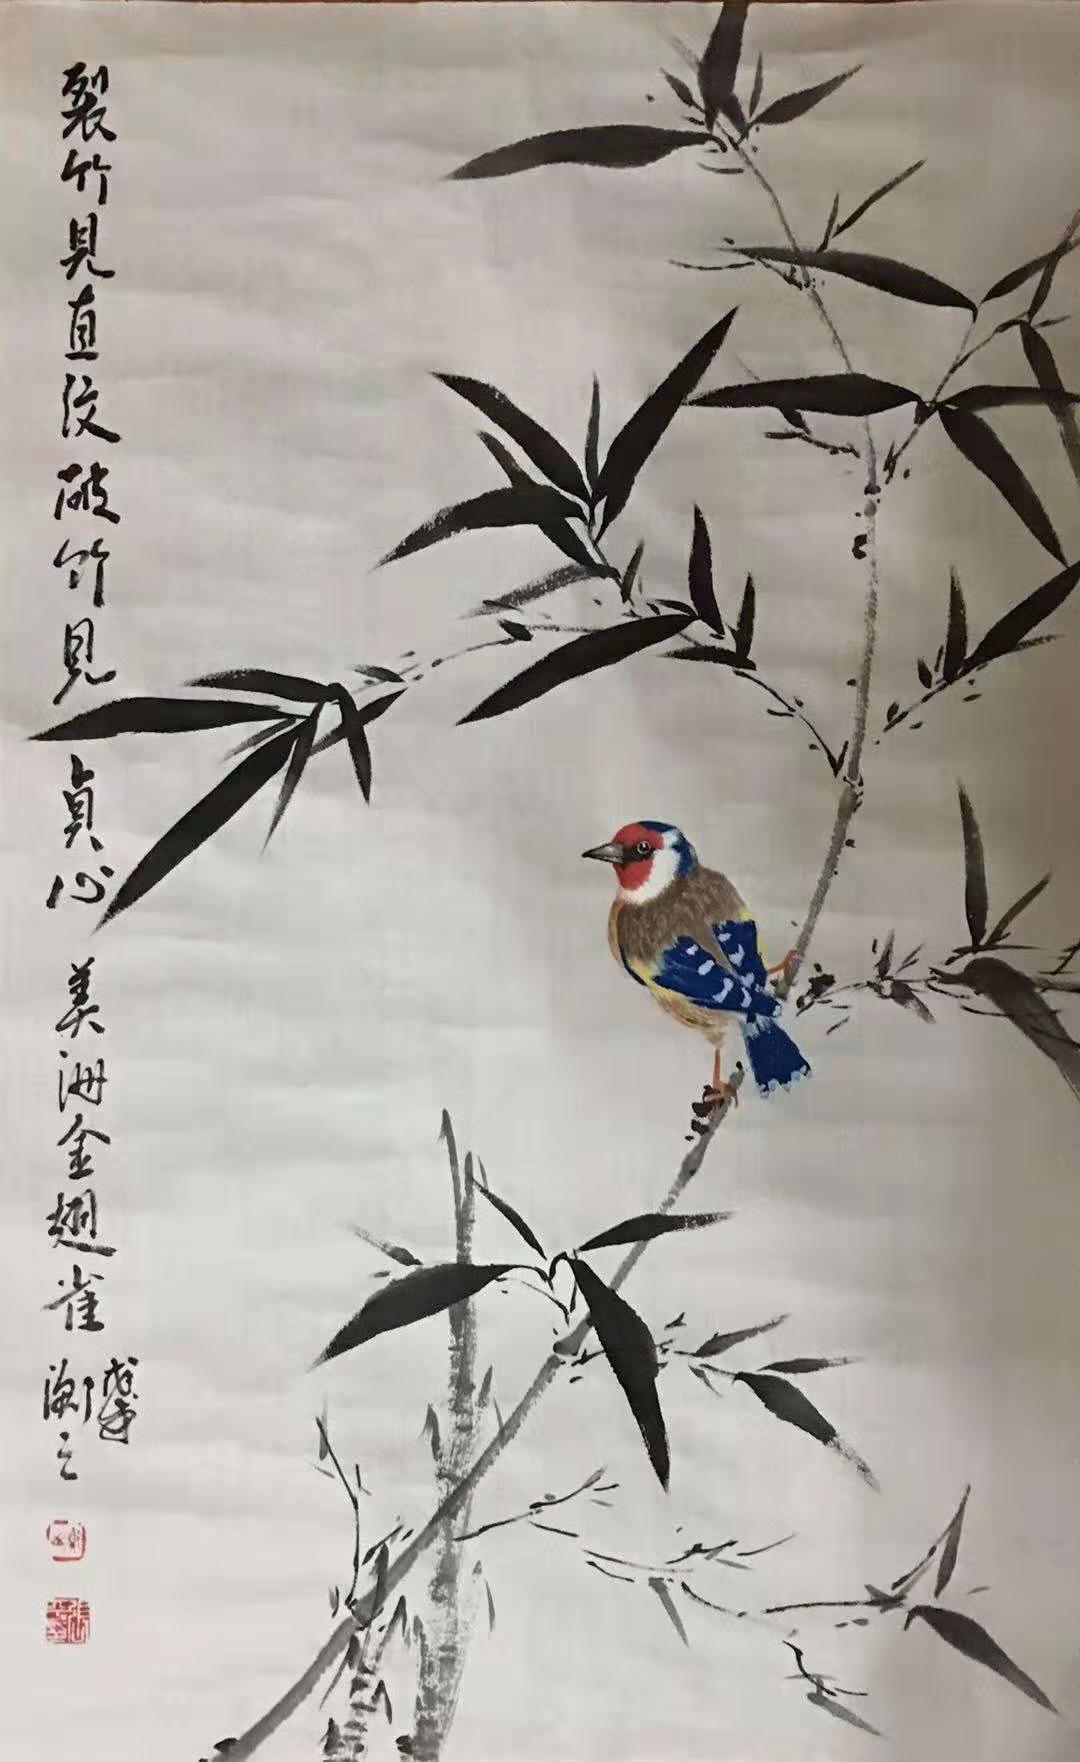 裂竹見直纹破竹見貞心 美洲金翅雀
戊戌
之